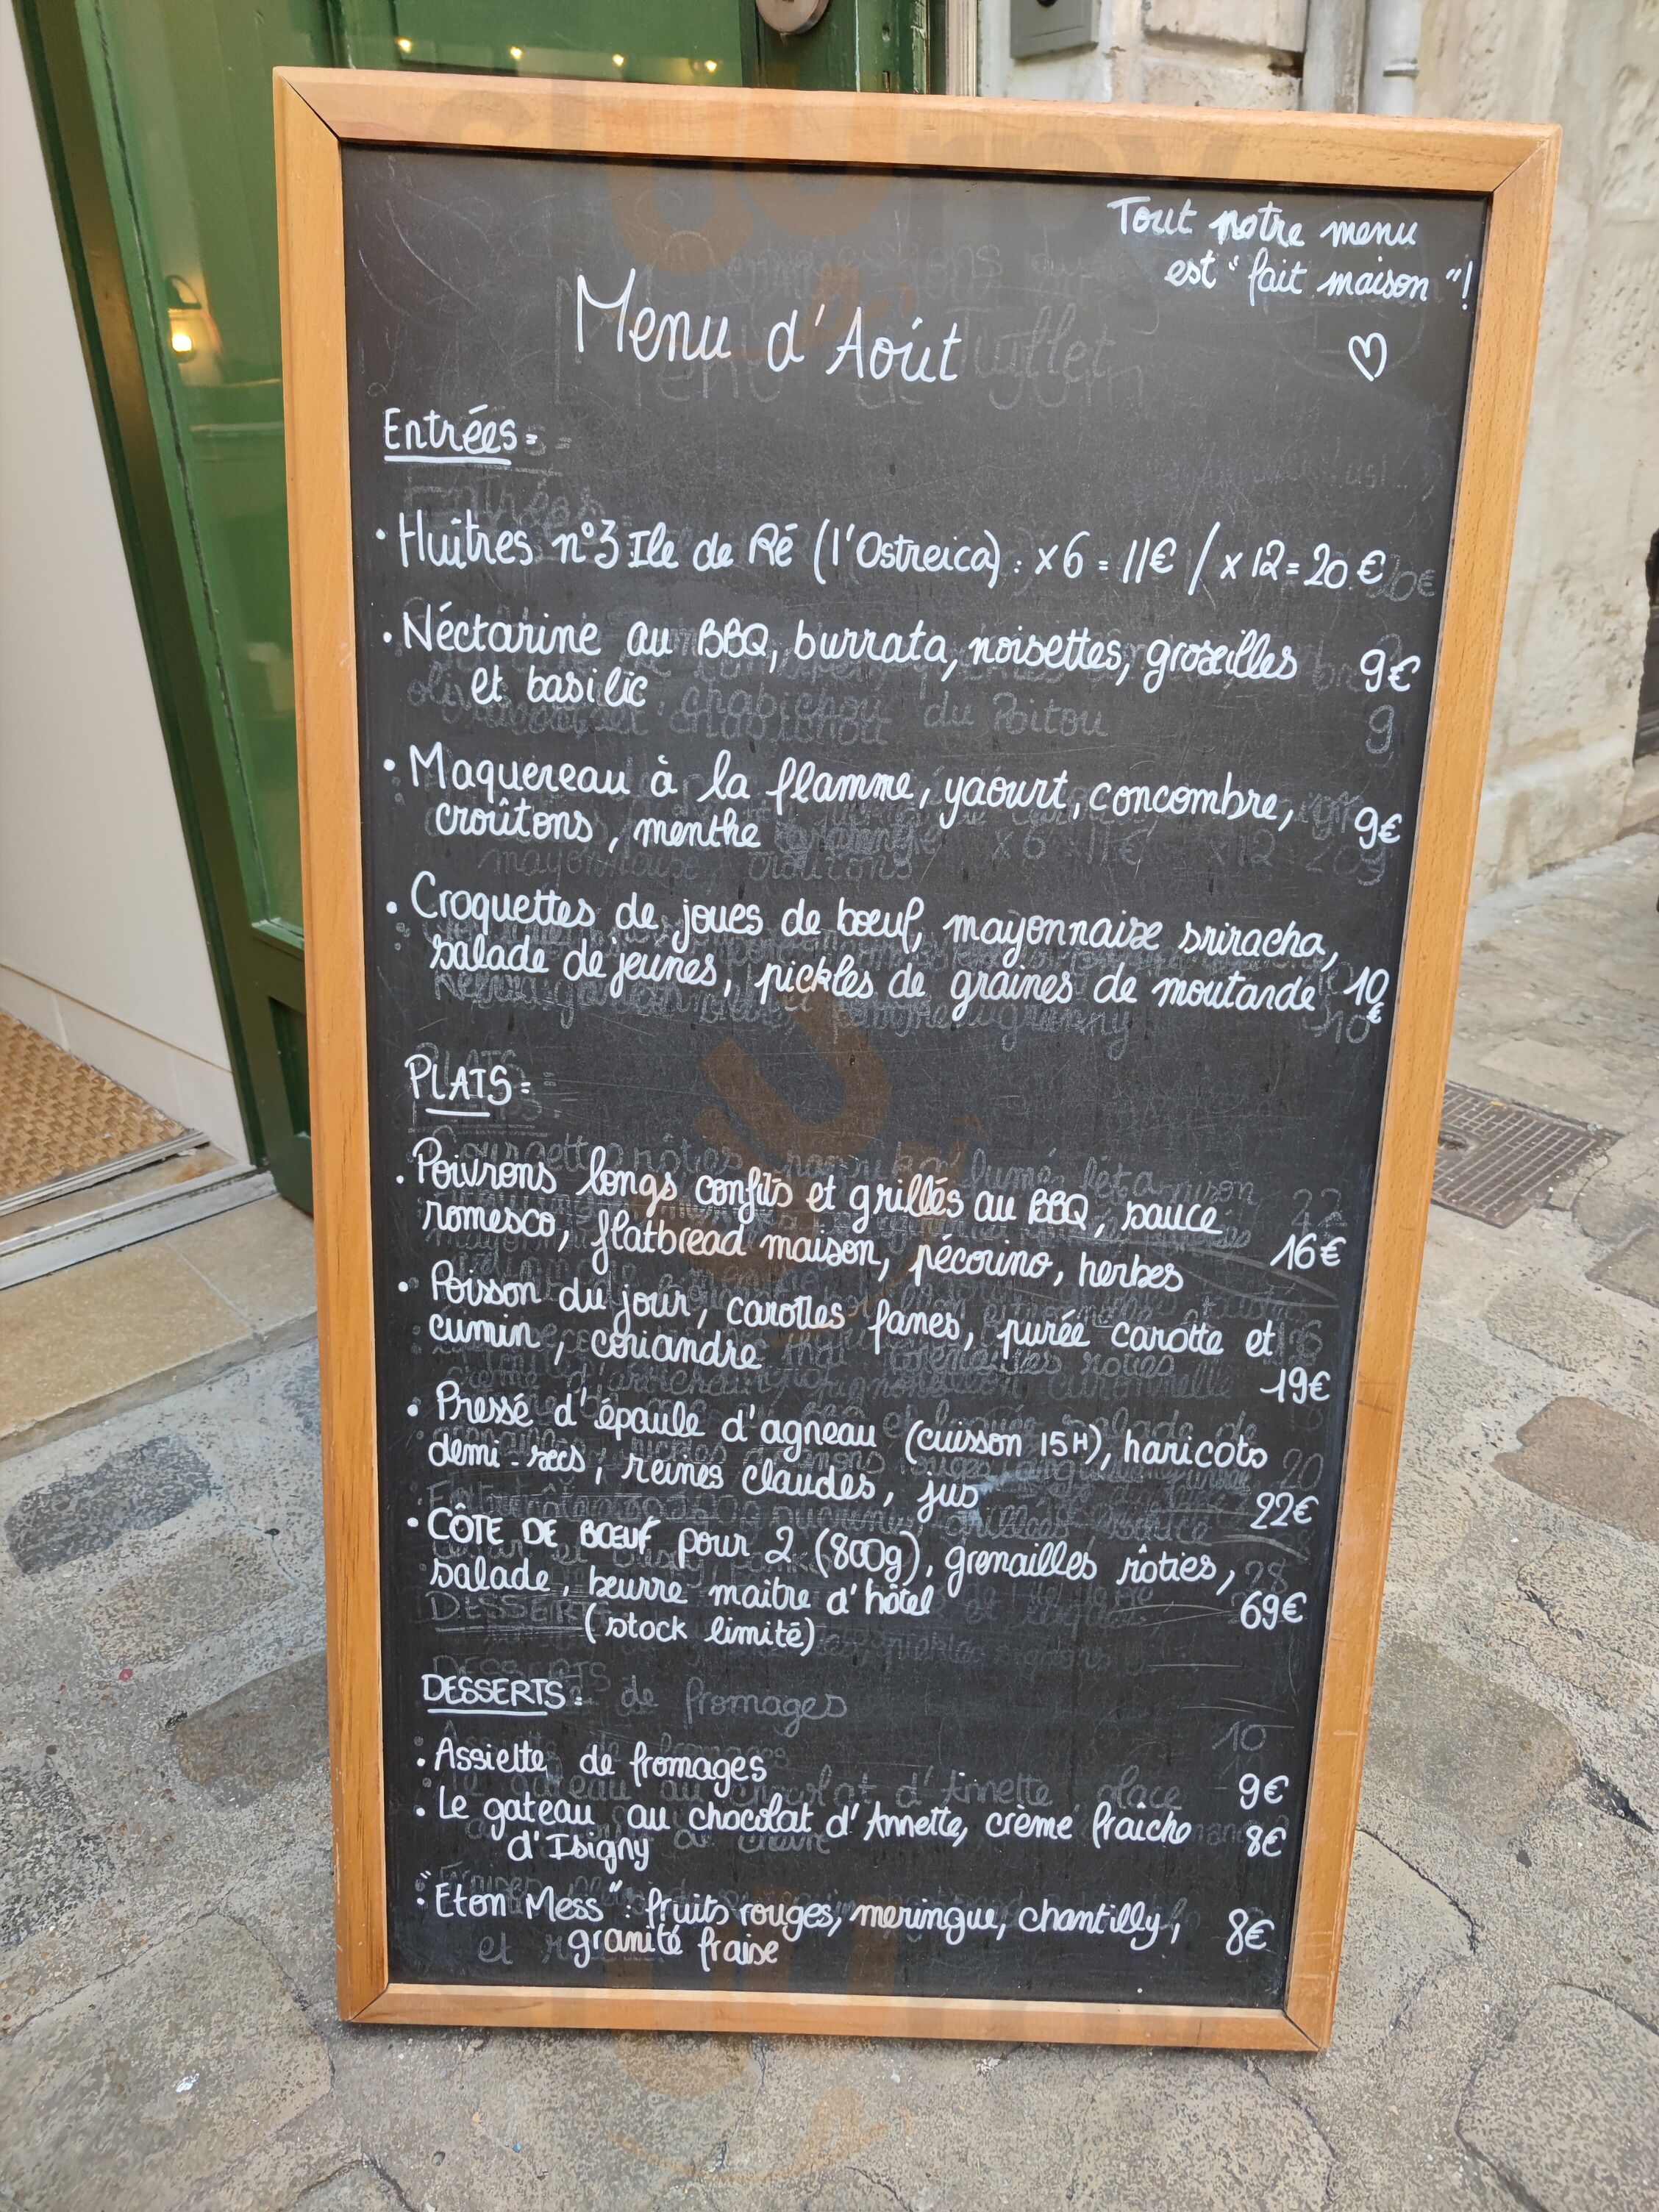 Tout notre menu
est "fait maison"!
Menu d'Août
Entrées:
• Huîtres n°3 Ile de Ré (l'Ostreica): x6 = 11€ / x12 = 20€
• Néctarine au BBQ, burrata, noisettes, groseilles 9€
et basilic
• Maquereau à la flamme, yaourt, concombre,
croûtons, menthe 9€
• Croquettes de joues de bœuf, mayonnaise sriracha,
salade de jeunes, pickles de graines de moutarde 10€
PLATS:
• Poivrons longs confits et grillés au BBQ, sauce
romesco, flatbread maison, pécorino, herbes 16€
• Poisson du jour, carottes fanes, purée carotte et
cumin, coriandre 19€
• Pressé d'épaule d'agneau (cuisson 15H), haricots
demi-secs, reines claudes, jus 22€
• CÔTE DE BŒUF pour 2 (800g), grenailles rôties,
salade, beurre maitre d'hôtel 69€
(stock limité)
DESSERTS:
• Assiette de fromages 9€
• Le gateau au chocolat d'Annette, crème fraîche 8€
d'Isigny
• "Eton Mess": fruits rouges, meringue, chantilly, 8€
granité fraise